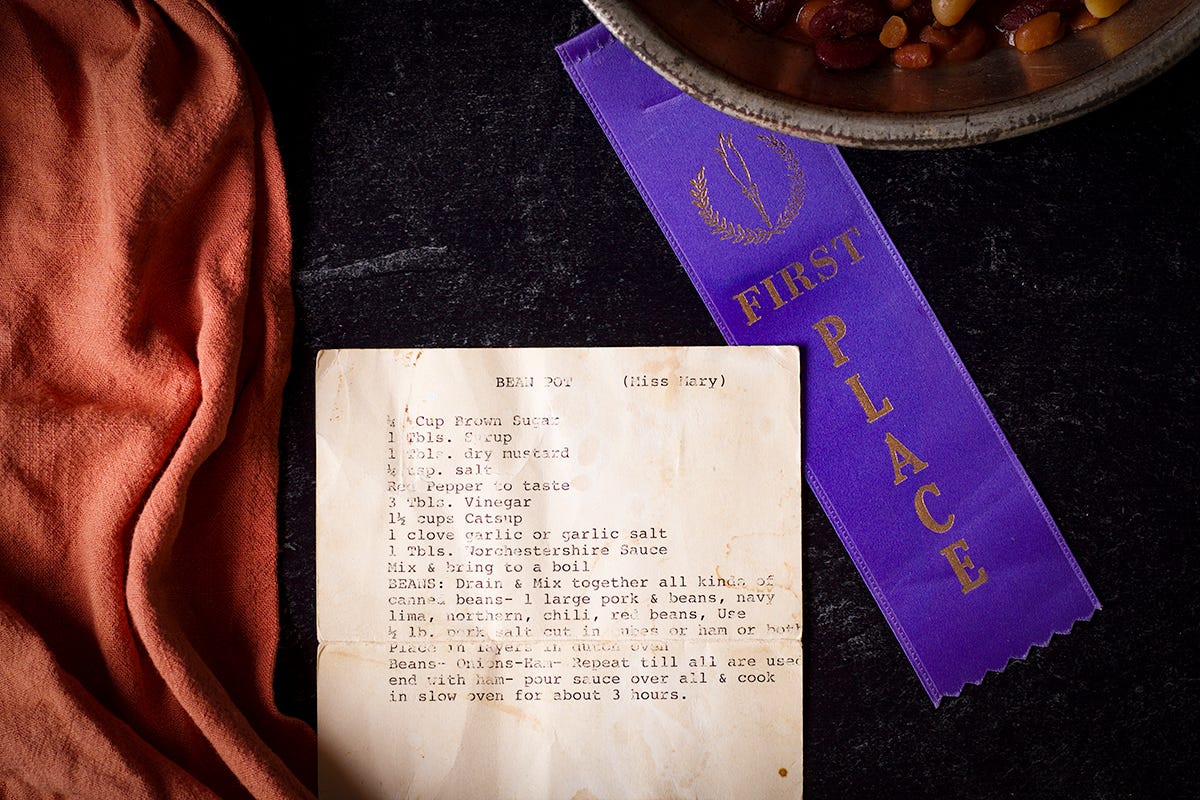 FIRST
PLACE
BEAN POT (Miss Mary)
Cup Brown Sugar
1 Tbls. Syrup
1 Tbls. dry mustard
½ tsp. salt
Red Pepper to taste
3 Tbls. Vinegar
1½ cups Catsup
1 clove garlic or garlic salt
1 Tbls. Worchestershire Sauce
Mix & bring to a boil
BEANS: Drain & Mix together all kinds of
canned beans- 1 large pork & beans, navy
lima, northern, chili, red beans, Use
½ lb. pork salt cut in cubes or ham or both
Place in layers in dutch oven
Beans- Onions-Ham- Repeat till all are used
end with ham- pour sauce over all & cook
in slow oven for about 3 hours.